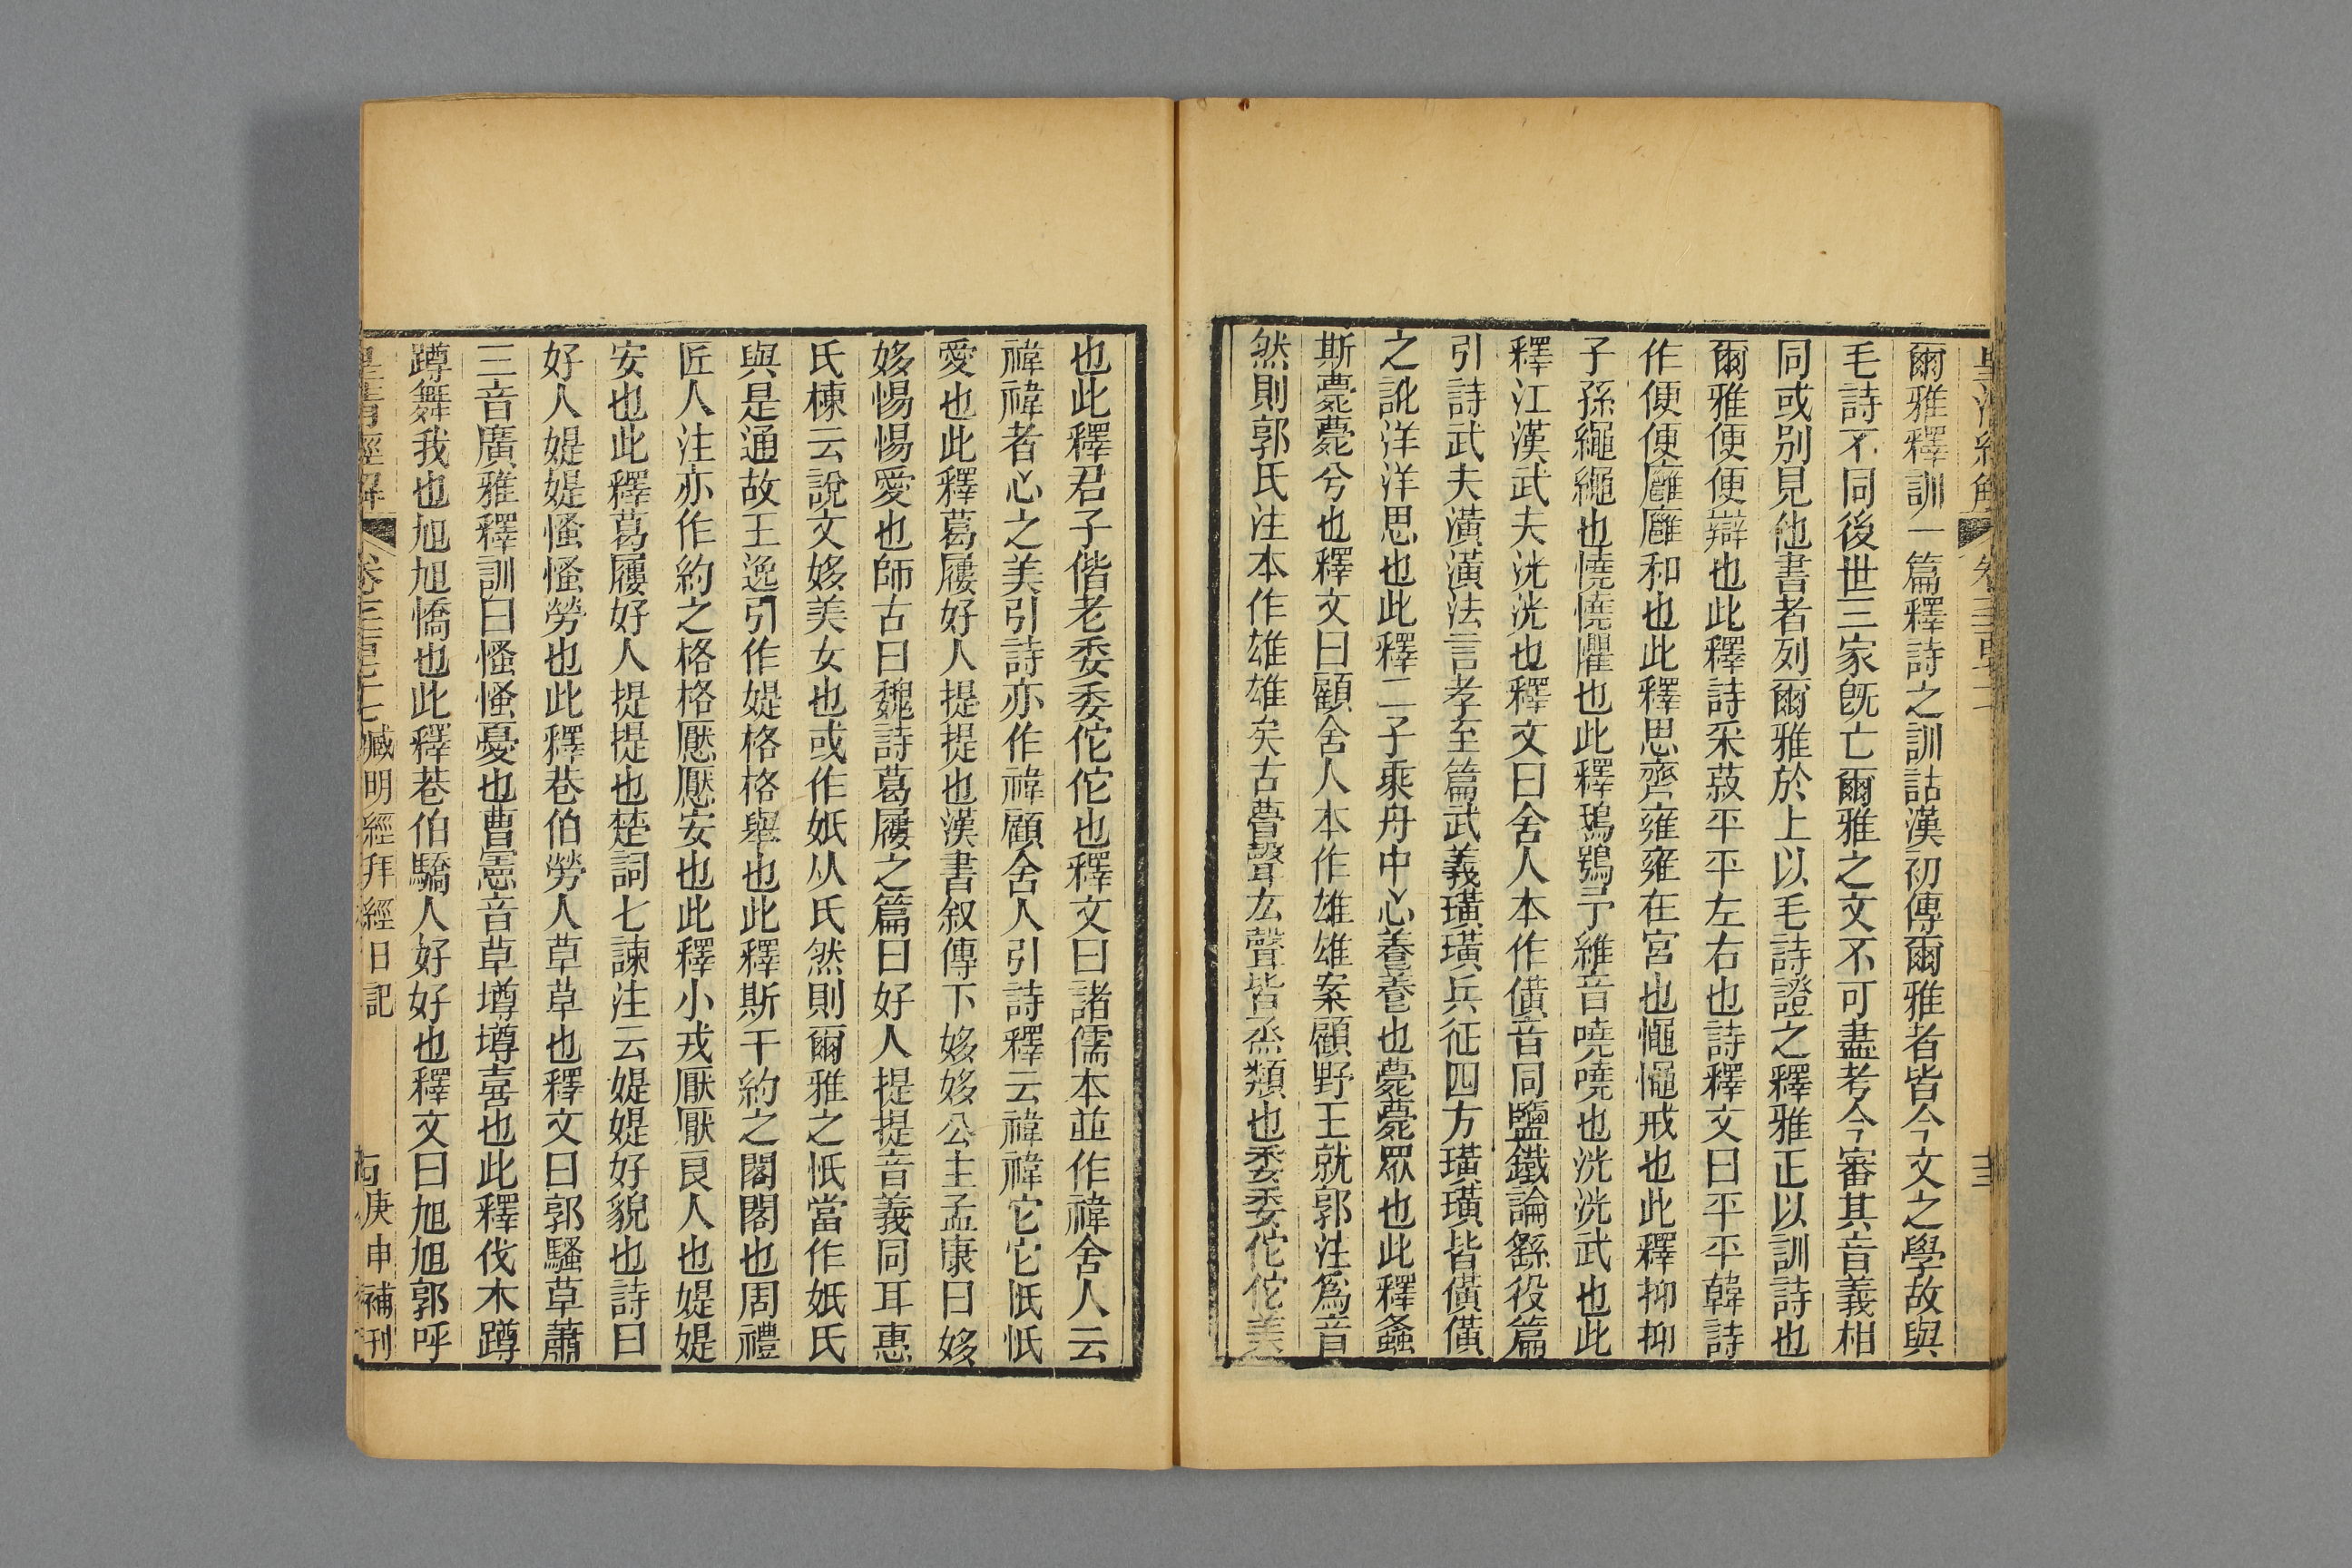 皇清經解
爾雅釋訓一篇釋詩之訓詁漢初傳爾雅者皆今文之學故與
毛詩不同後世三家旣亡爾雅之文不可盡考今審其音義相
同或別見他書者列爾雅於上以毛詩證之釋雅正以訓詩也
爾雅便便辯也此釋詩采菽平平左右也詩釋文曰平平韓詩
作便便廱廱和也此釋思齊雍雍在宮也憴憴戒也此釋抑抑
子孫繩繩也憢憢懼也此釋鴟鴞予維音嘵嘵也洸洸武也此
釋江漢武夫洸洸也釋文曰舍人本作僙音同鹽鐵論繇役篇
引詩武夫潢潢法言孝至篇武義璜璜兵征四方璜璜皆僙僙
之訛洋洋思也此釋二子乘舟中心養養也薨薨眾也此釋螽
斯薨薨兮也釋文曰顧舍人本作雄雄案顧野王就郭注爲音
然則郭氏注本作雄雄矣古薨聲厷聲皆烝類也委委佗佗美
也此釋君子偕老委委佗佗也釋文曰諸儒本並作禕舍人云
禕禕者心之美引詩亦作禕顧舍人引詩釋云禕禕它它怟怟
愛也此釋葛屨好人提提也漢書叙傳下姼姼公主孟康曰姼
姼惕惕愛也師古曰魏詩葛屨之篇曰好人提提音義同耳惠
氏棟云說文姼美女也或作妷从氏然則爾雅之怟當作妷氏
與是通故王逸引作媞格格舉也此釋斯干約之閣閣也周禮
匠人注亦作約之格格懕懕安也此釋小戎厭厭良人也媞媞
安也此釋葛屨好人提提也楚詞七諫注云媞媞好貌也詩曰
好人媞媞慅慅勞也此釋巷伯勞人草草也釋文曰郭騷草蕭
三音廣雅釋訓曰慅慅憂也曹憲音草墫墫喜也此釋伐木蹲
蹲舞我也旭旭憍也此釋巷伯驕人好好也釋文曰旭旭郭呼
皇清經解 臧明經拜經日記 庚申補刊